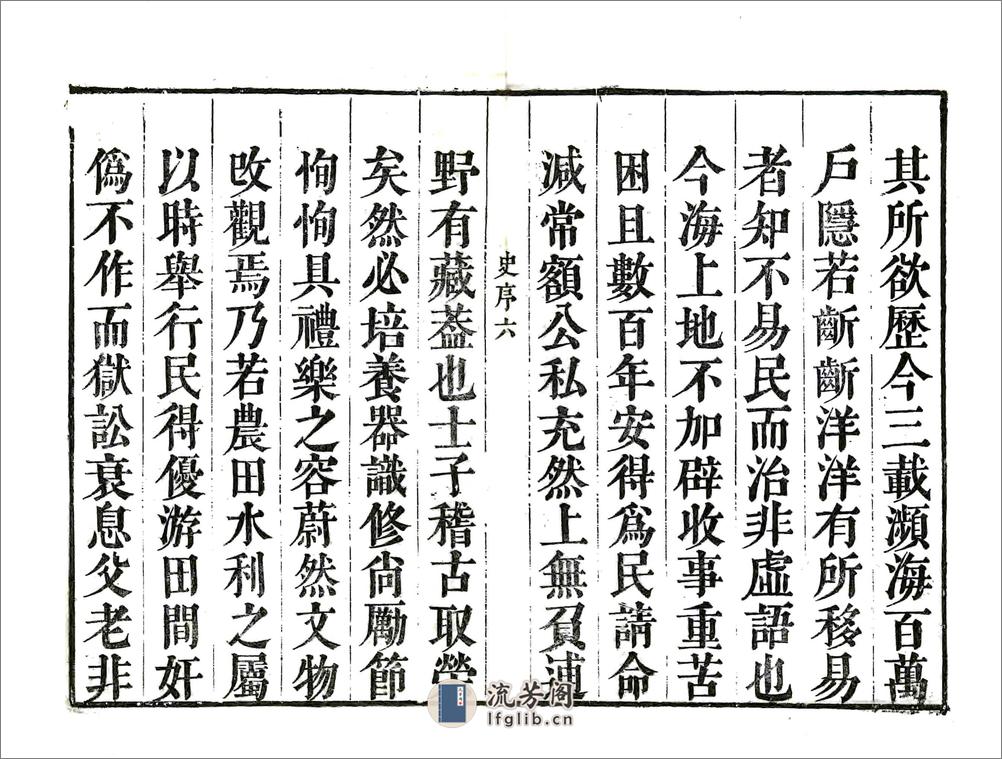 其所欲歷今三載瀕海百萬
戶隱若齗齗洋洋有所移易
者知不易民而治非虛語也
今海上地不加辟收事重苦
困且數百年安得爲民請命
減常額公私充然上無負逋
史序六
野有藏葢也士子稽古取榮
矣然必培養器識修尙勵節
恂恂具禮樂之容蔚然文物
改觀焉乃若農田水利之屬
以時舉行民得優游田間奸
僞不作而獄訟衰息父老非
流芳阁
lfglib.cn